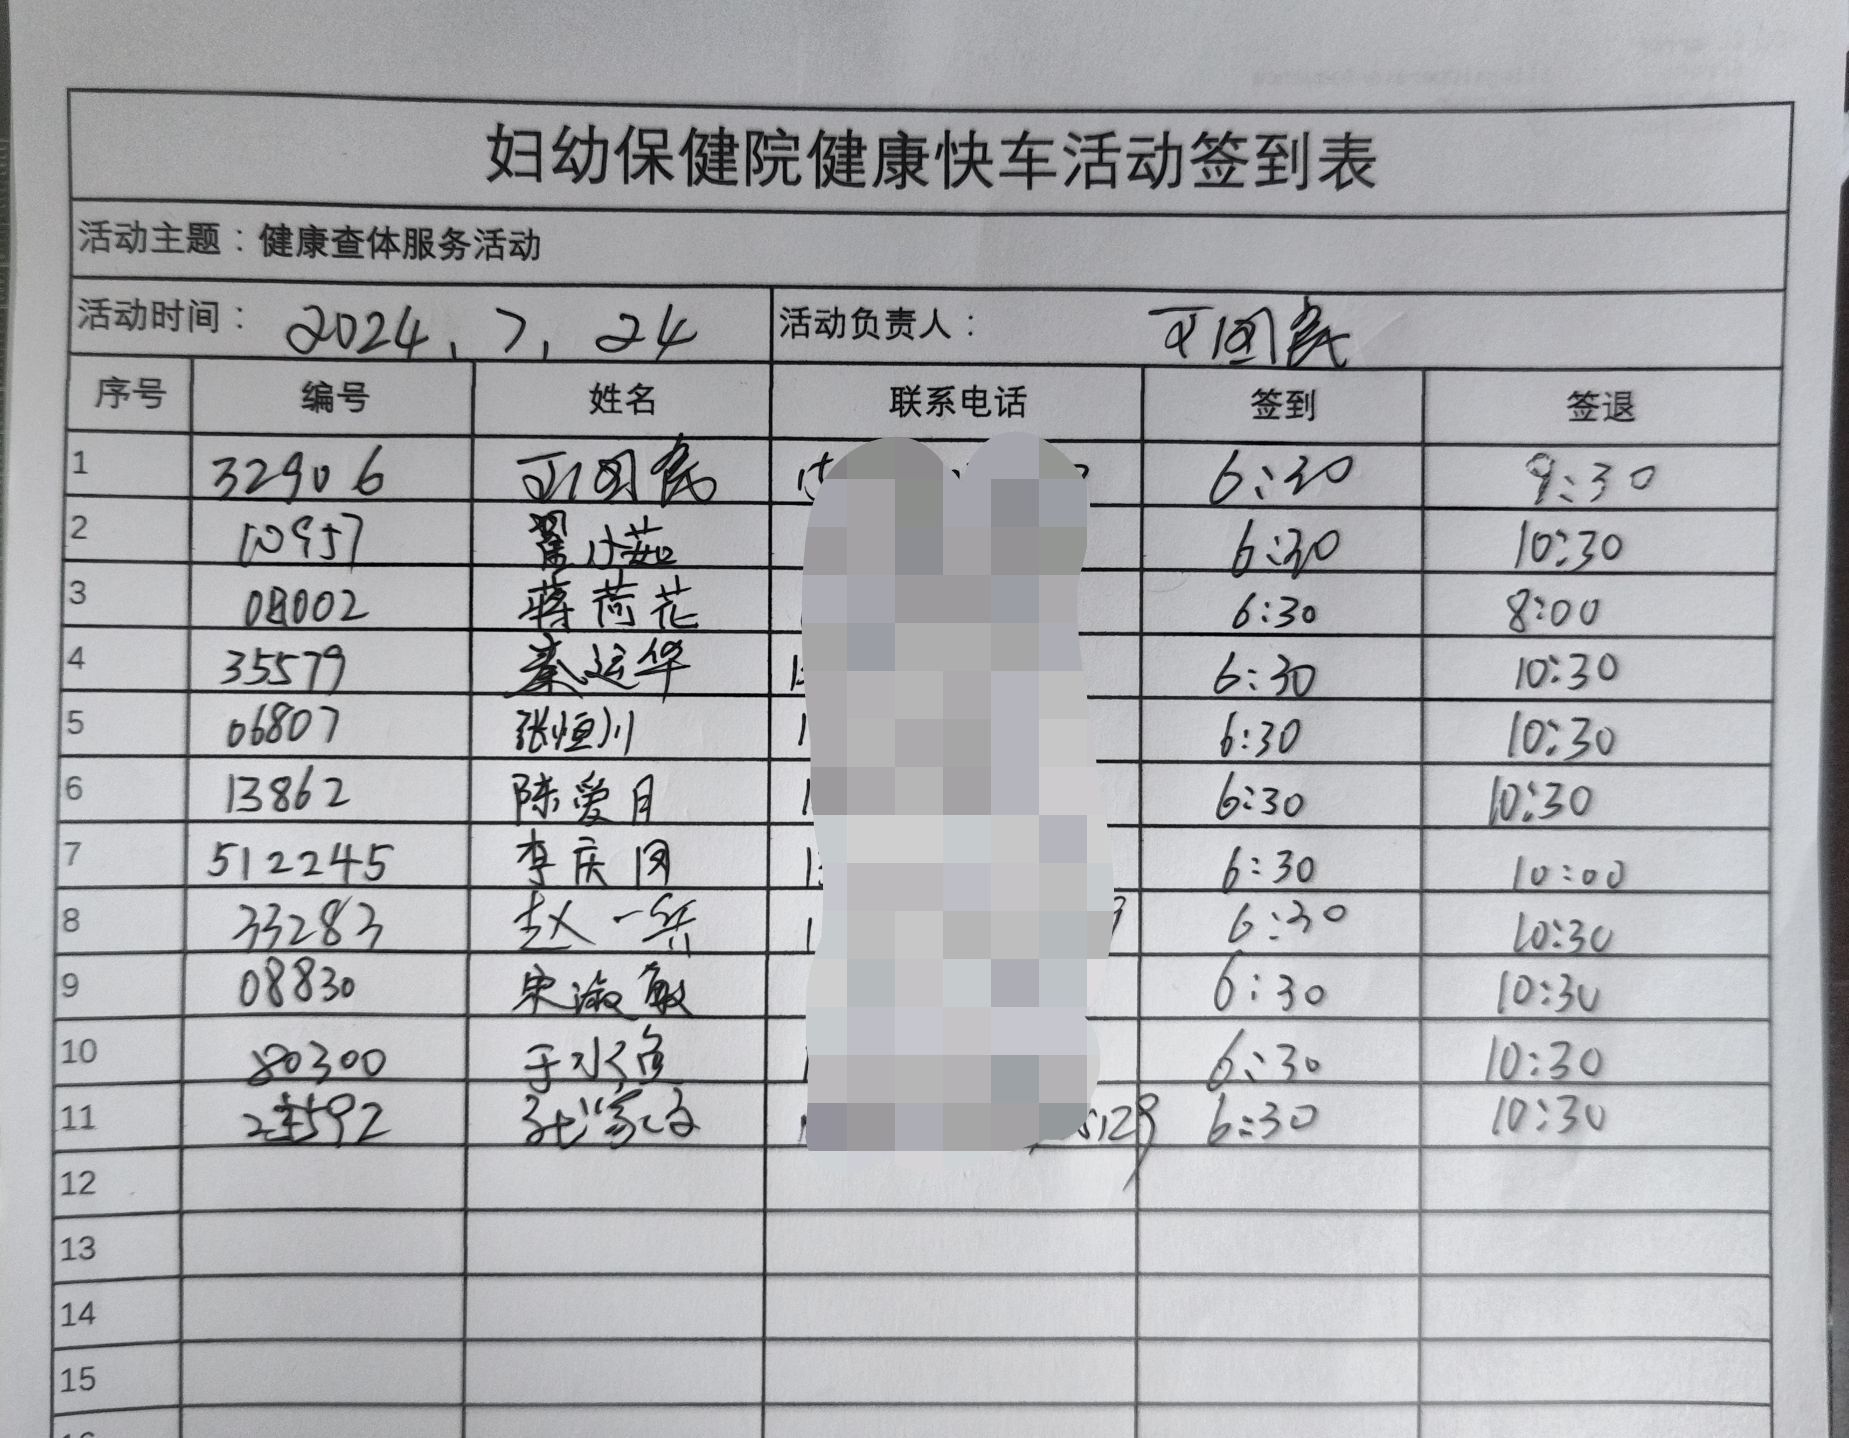 妇幼保健院健康快车活动签到表
活动主题：健康查体服务活动
活动时间： 2024.7.24 活动负责人：
序号 编号 姓名 联系电话 签到 签退
1 32906 6:30 9:30
2 10957 翟小茹 6:30 10:30
3 08002 蒋荷花 6:30 8:00
4 35579 秦运华 6:30 10:30
5 06807 张恒川 6:30 10:30
6 13862 陈爱月 6:30 10:30
7 512245 李庆 6:30 10:00
8 33283 赵一 6:30 10:30
9 08830 宋淑敏 6:30 10:30
10 80300 于水 6:30 10:30
11 6:30 10:30
12
13
14
15